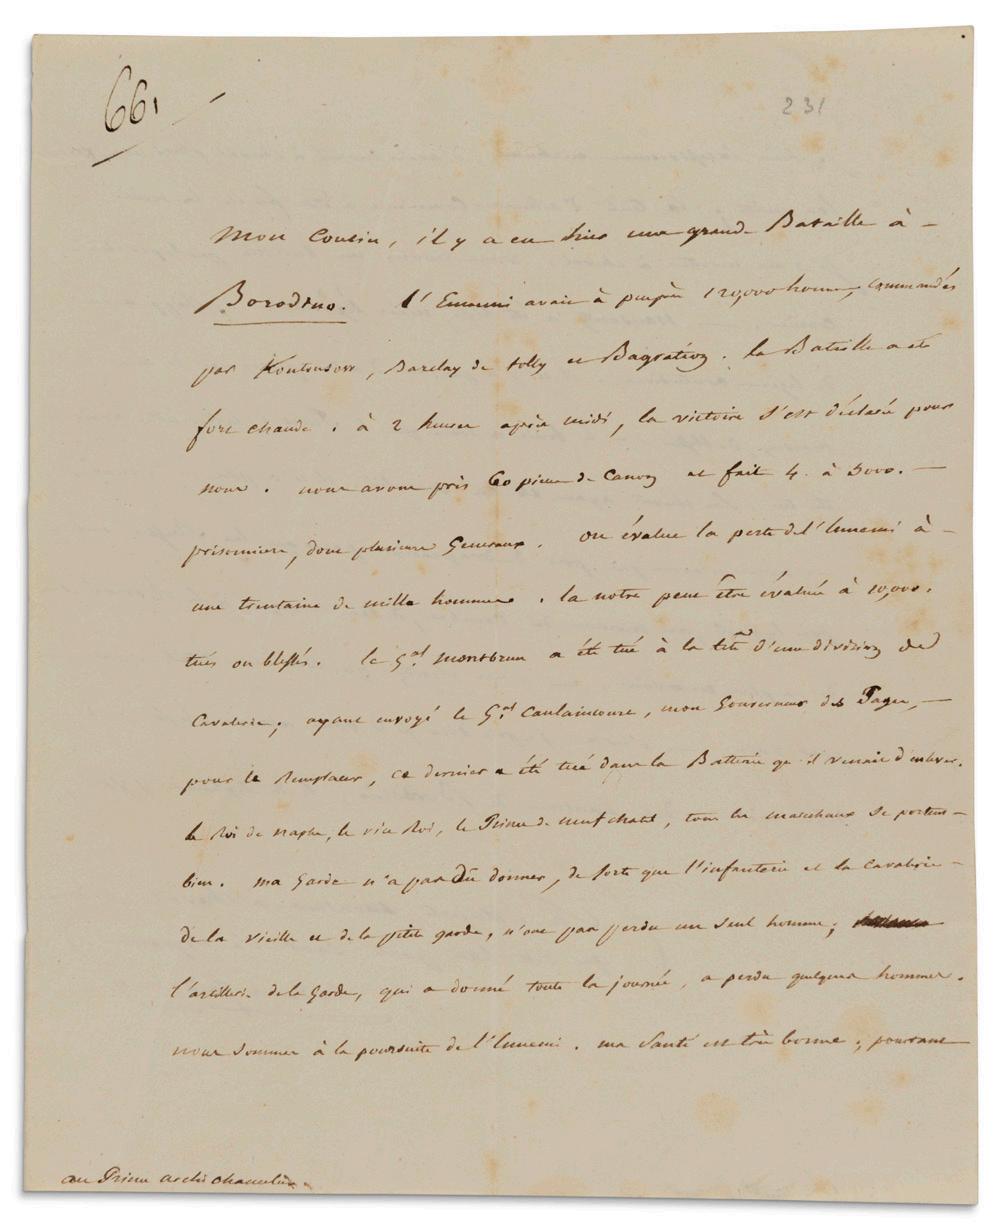 661
231
Mon Cousin, il y a eu hier une grande Bataille à –
Borodino. l'Ennemi avait à peuprès 120,000 hommes, commandés
par Koutousow, Barclay de tolly et Bagration. la Bataille a été
fort chaude. à 2 heures après midi, la victoire s'est déclarée pour
nous. nous avons pris 60 pièces de Canon et fait 4 à 5000. –
prisonniers, dont plusieurs Generaux. on évalue la perte de l'Ennemi à –
une trentaine de mille hommes. la notre peut être évaluée à 10,000.
tués ou blessés. le Gal. Montbrun a été tué à la tête d'une division de
Cavalerie; ayant envoyé le Gal. Caulaincourt, mon Gouverneur des Pages, –
pour le remplacer, ce dernier a été tué dans la Batterie qu'il venait d'enlever.
le Roi de Naples, le vice Roi, le Prince de Neufchatel, tous les maréchaux se portent –
bien. ma Garde n'a pas dû donner, de sorte que l'infanterie et la cavalerie –
de la vieille et de la petite garde, n'ont pas perdu un seul homme;
l'artillerie de la Garde, qui a donné toute la journée, a perdu quelques hommes.
nous sommes à la poursuite de l'Ennemi. ma Santé est très bonne; pourtant
au Prince archichancelier.